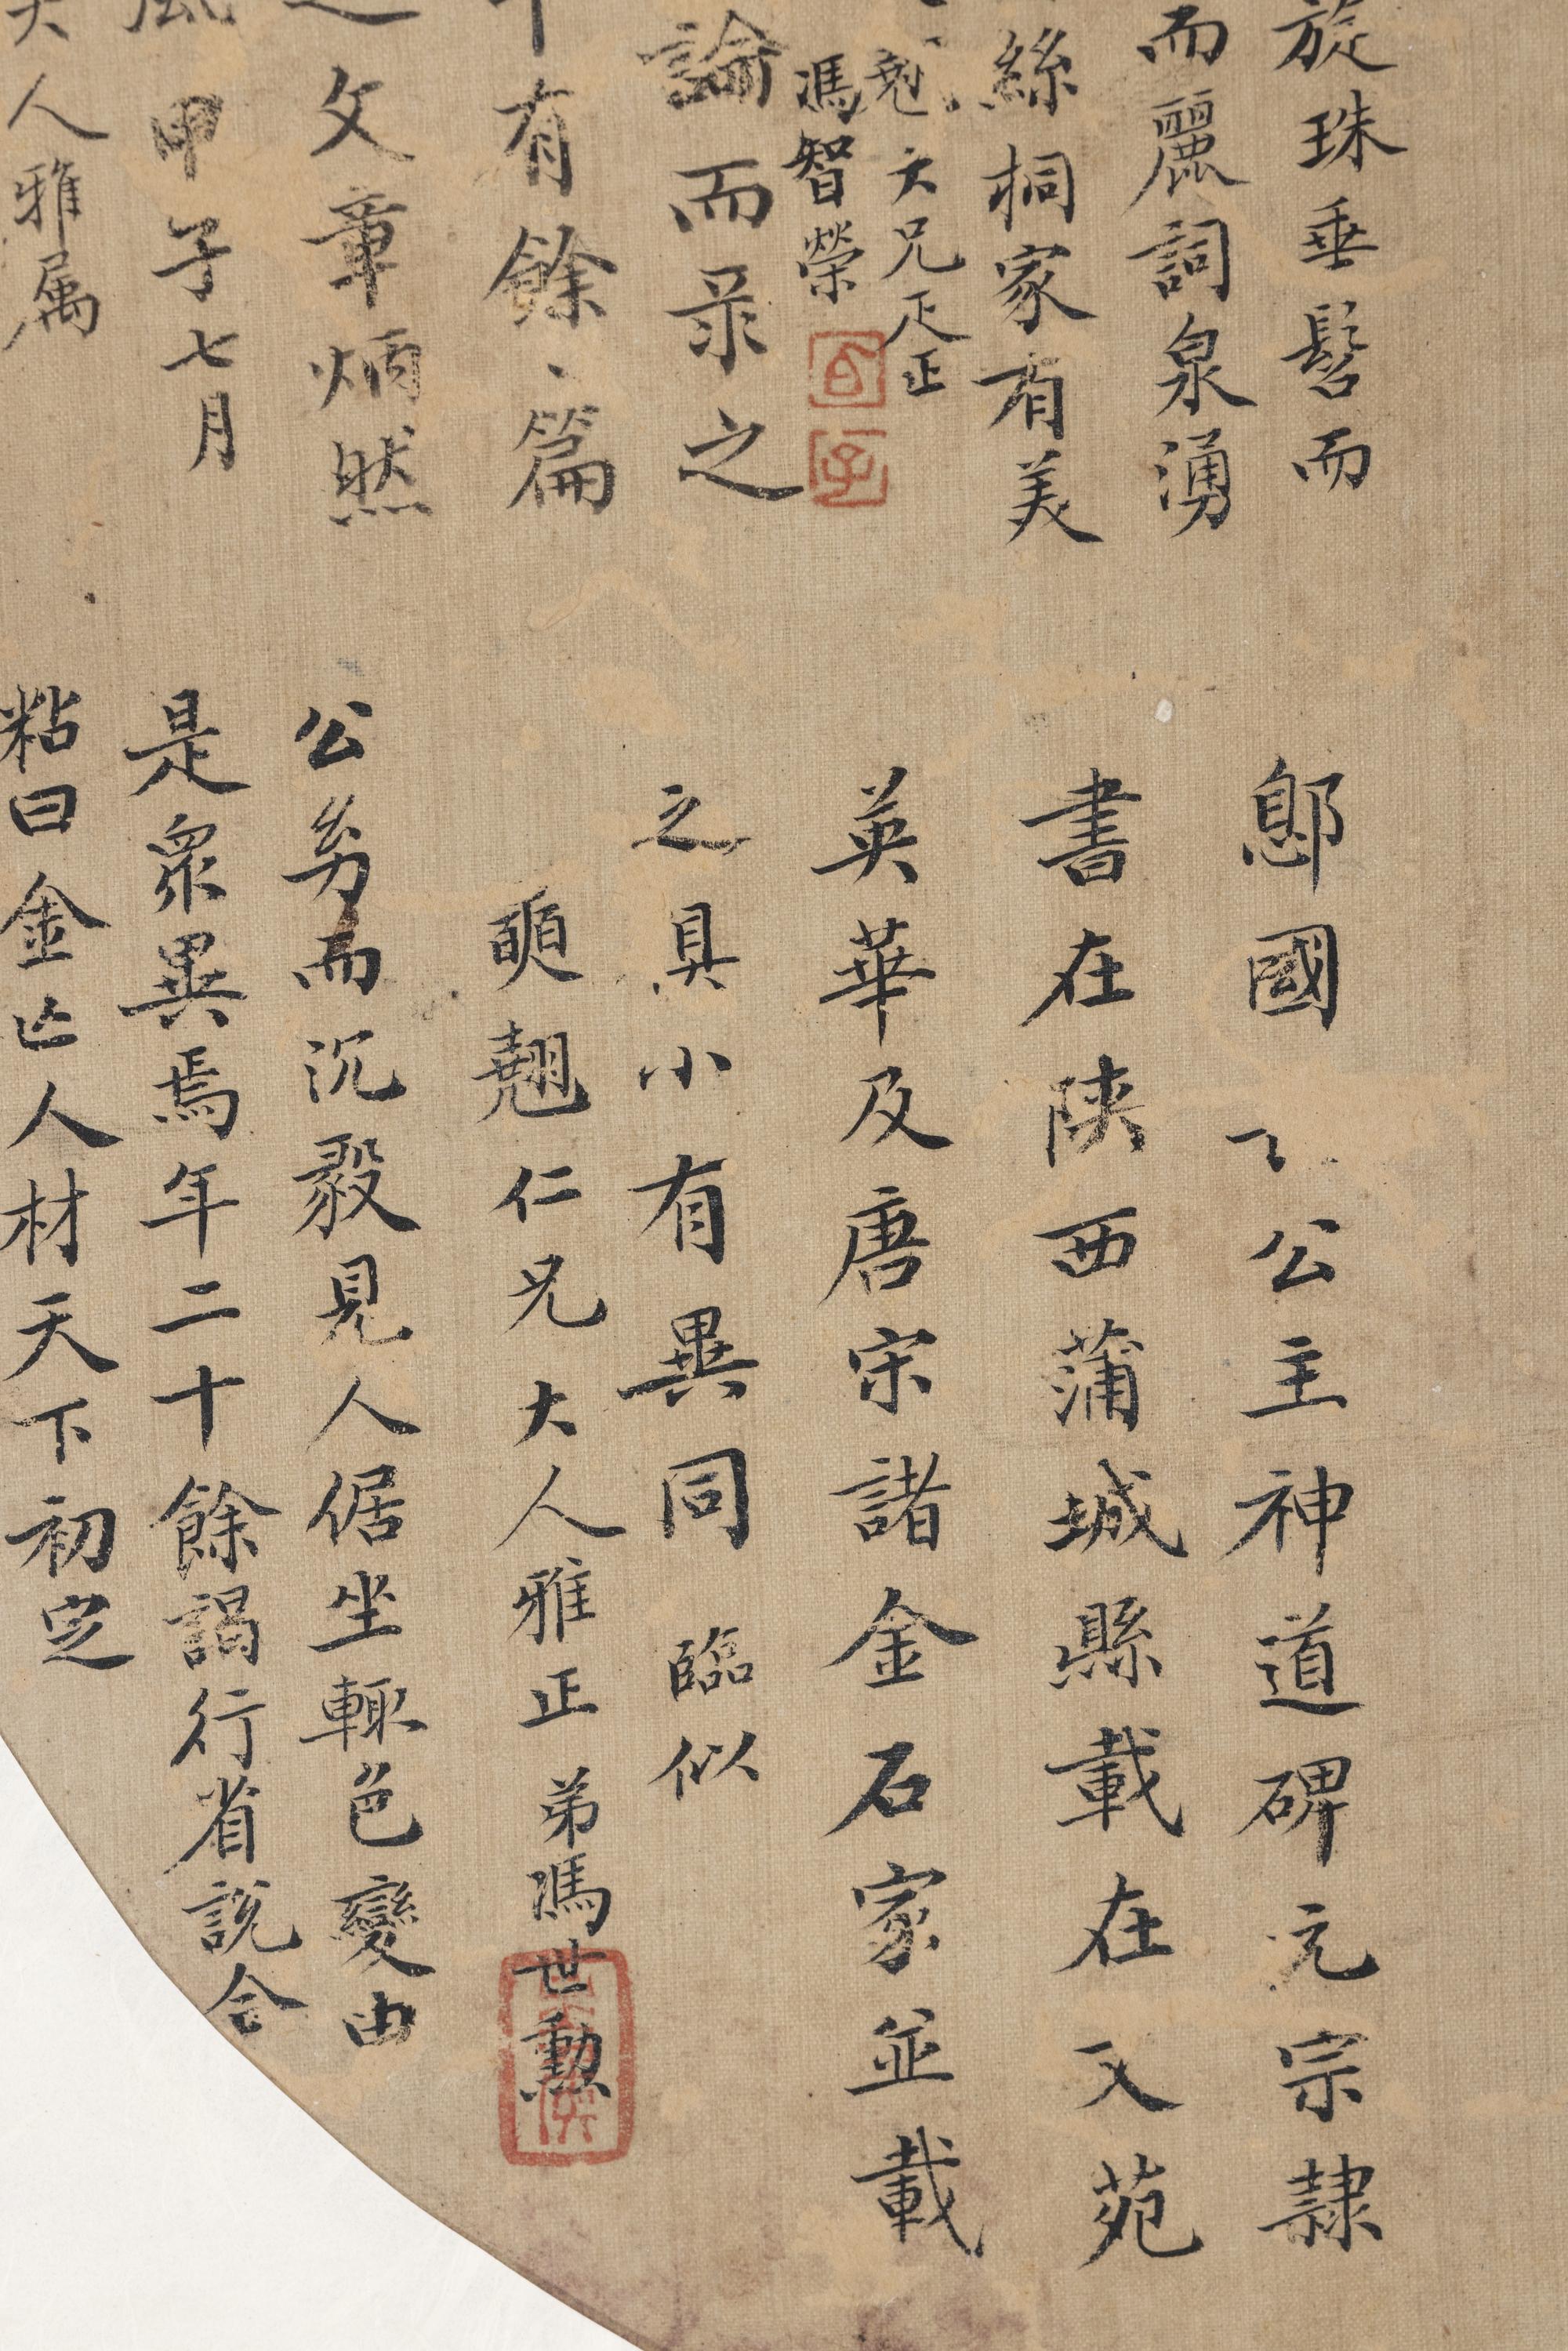 旋珠垂髫而
而麗詞泉湧
絲桐家有美
大兄疋正
馮智榮
論而录之
有餘、篇
文章炳然
甲子七月
大人雅属
鄎國公主神道碑元宗隷
書在陝西蒲城縣載在文苑
英華及唐宋諸金石家並載
之具小有異同 臨似
翹仁兄大人雅正 弟馮世勳
公幼而沉毅見人倨坐輒色變由
是衆異焉年二十餘謁行省說令
粘曰金亡人材天下初定